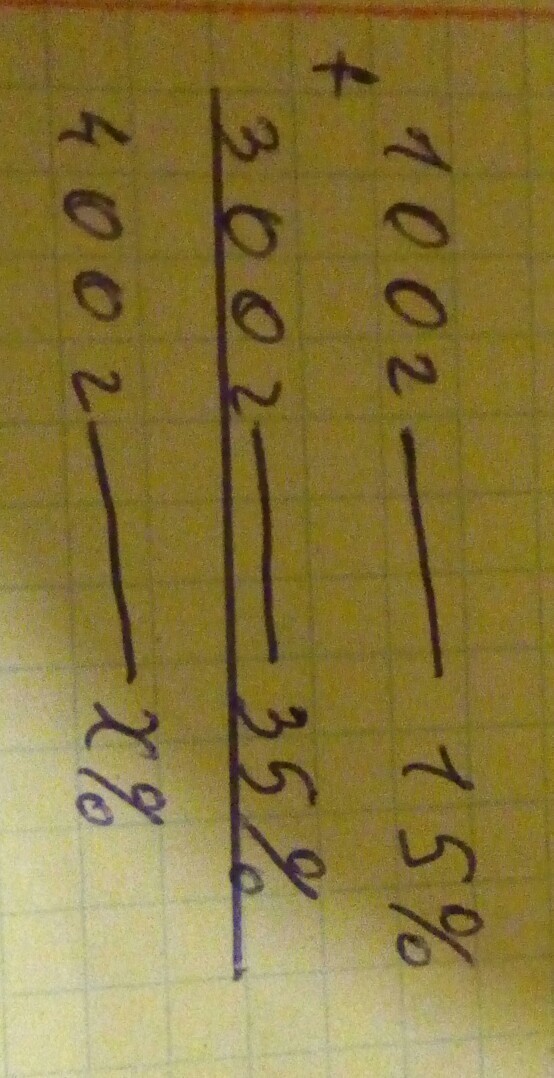 100г — 15%
+
300г — 35%
400г — x%